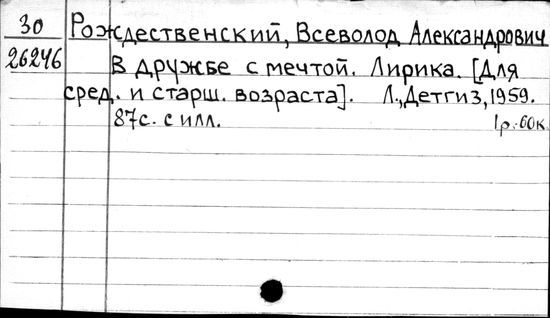 30
26246
Рождественский, Всеволод Александрович
В дружбе с мечтой. Лирика. [Для
сред. и старш. возраста]. Л., Детгиз, 1959.
87с. с илл. 1р.60к.